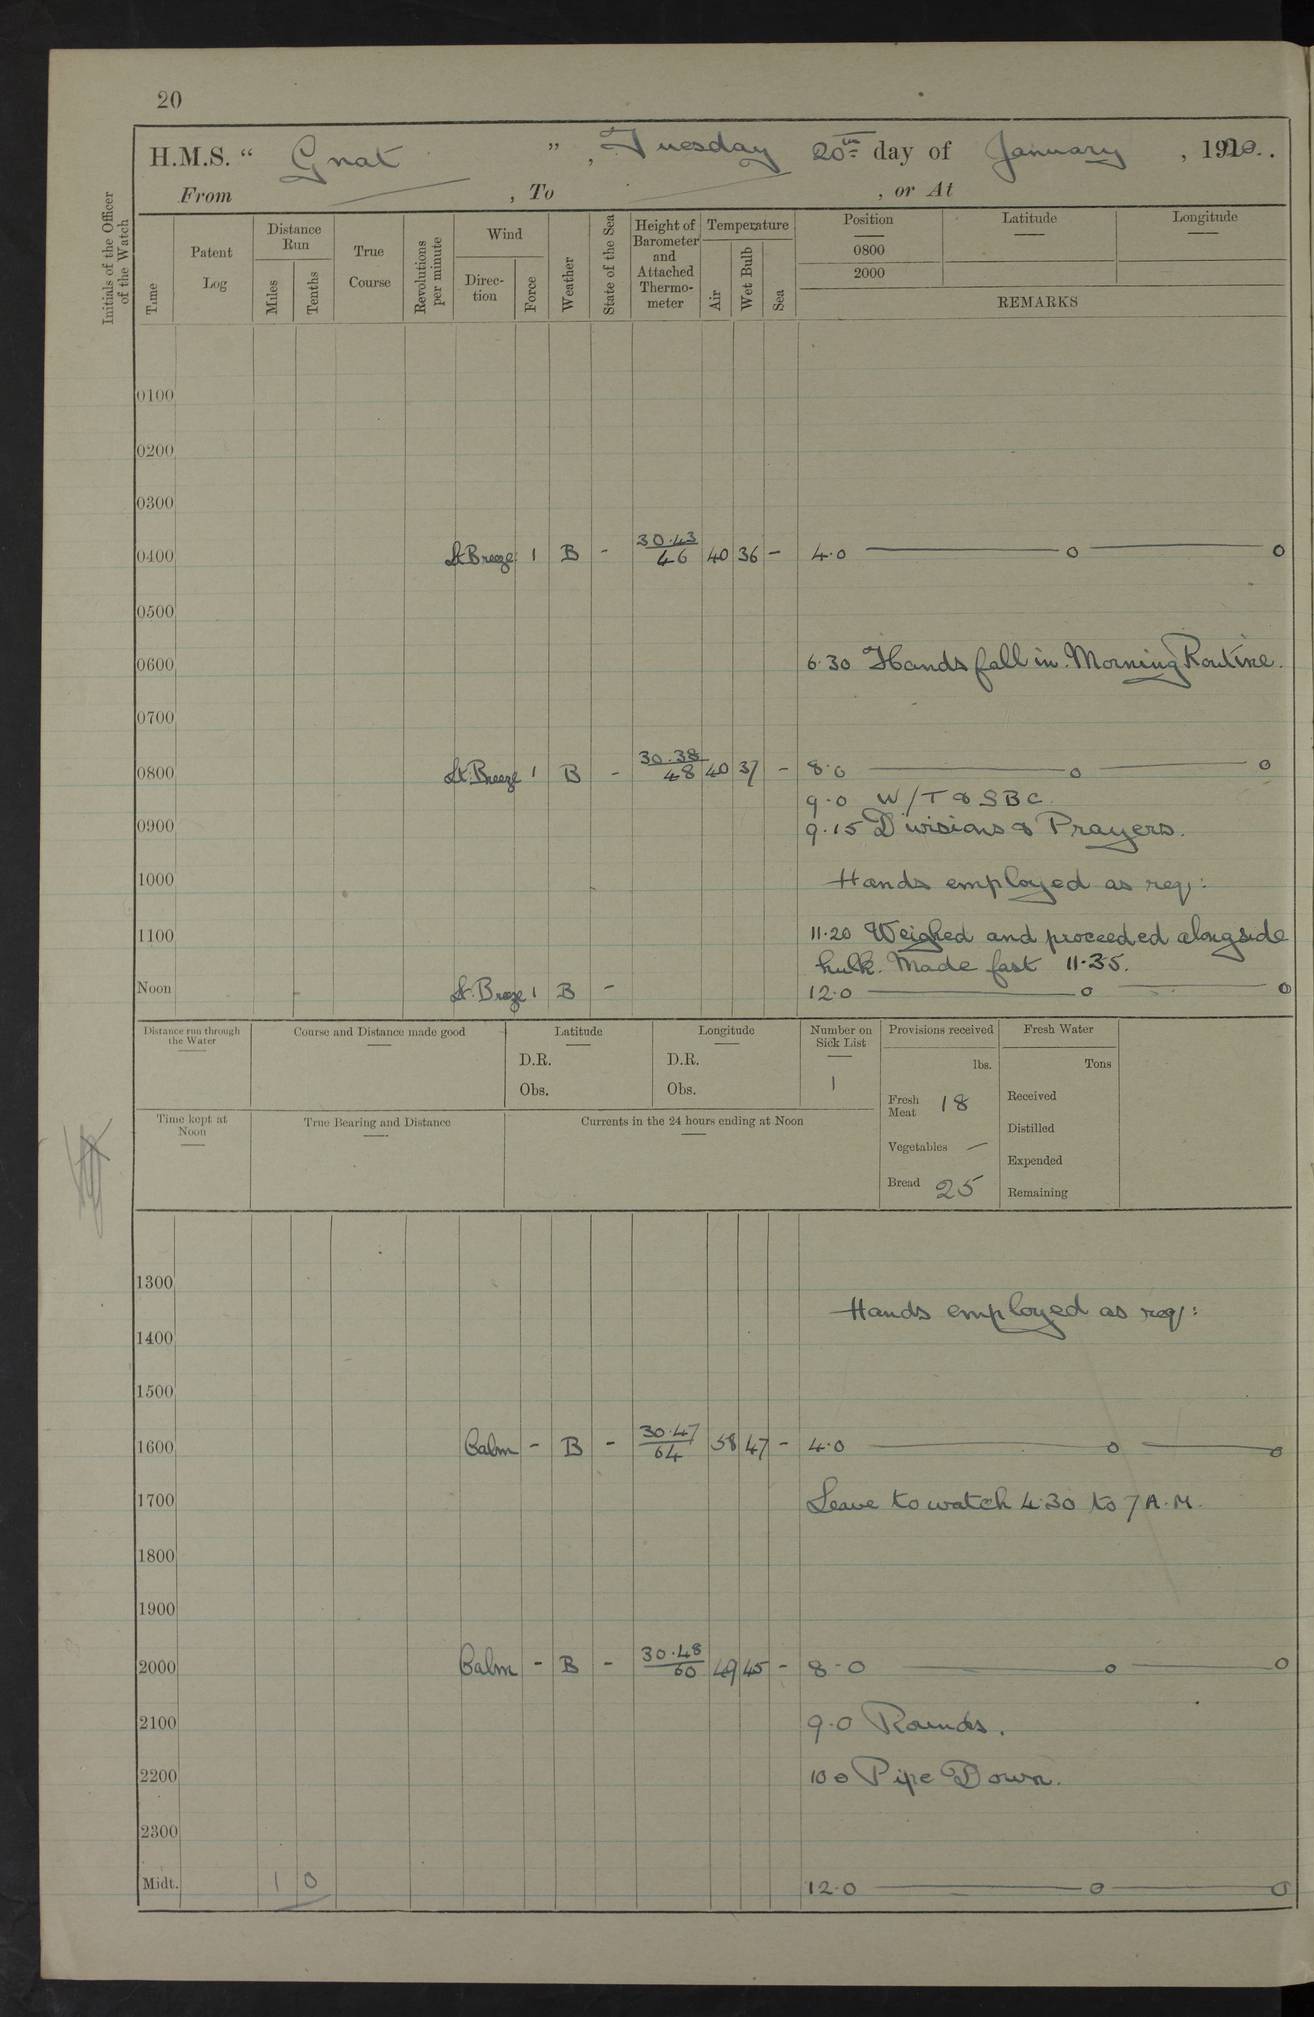 20
H.M.S. “ Gnat ” , Tuesday 20th day of January , 1920.
From , To , or At
Initials of the Officer of the Watch
Time
Patent Log
Distance Run
Miles
Tenths
True Course
Revolutions per minute
Wind
Direction
Force
Weather
State of the Sea
Height of Barometer and Attached Thermometer
Temperature
Air
Wet Bulb
Sea
Position
0800
2000
Latitude
Longitude
REMARKS
0100
0200
0300
0400 Lt Breeze 1 B - 30.43/46 40 36 - 4.0 o o
0500
0600 6.30 Hands fall in. Morning Routine.
0700
0800 Lt. Breeze 1 B - 30.38/48 40 37 - 8.0 o o
9.0 W/T & SBC.
0900 9.15 Divisions & Prayers.
1000 Hands employed as req:
1100 11.20 Weighed and proceeded alongside
hulk. Made fast 11.35.
Noon Lt. Breeze 1 B - 12.0 o o
Distance run through the Water
Course and Distance made good
Latitude
D.R.
Obs.
Longitude
D.R.
Obs.
Number on Sick List
1
Provisions received
lbs.
Fresh Meat 18
Vegetables —
Bread 25
Fresh Water
Tons
Received
Distilled
Expended
Remaining
Time kept at Noon
True Bearing and Distance
Currents in the 24 hours ending at Noon
1300
Hands employed as req:
1400
1500
1600 Calm - B - 30.47/64 58 47 - 4.0 o o
1700 Leave to watch 4.30 to 7 A.M.
1800
1900
2000 Calm - B - 30.48/60 49 45 - 8-0 o o
2100 9.0 Rounds.
2200 10 0 Pipe Down.
2300
Midt. 1 0 12.0 o o